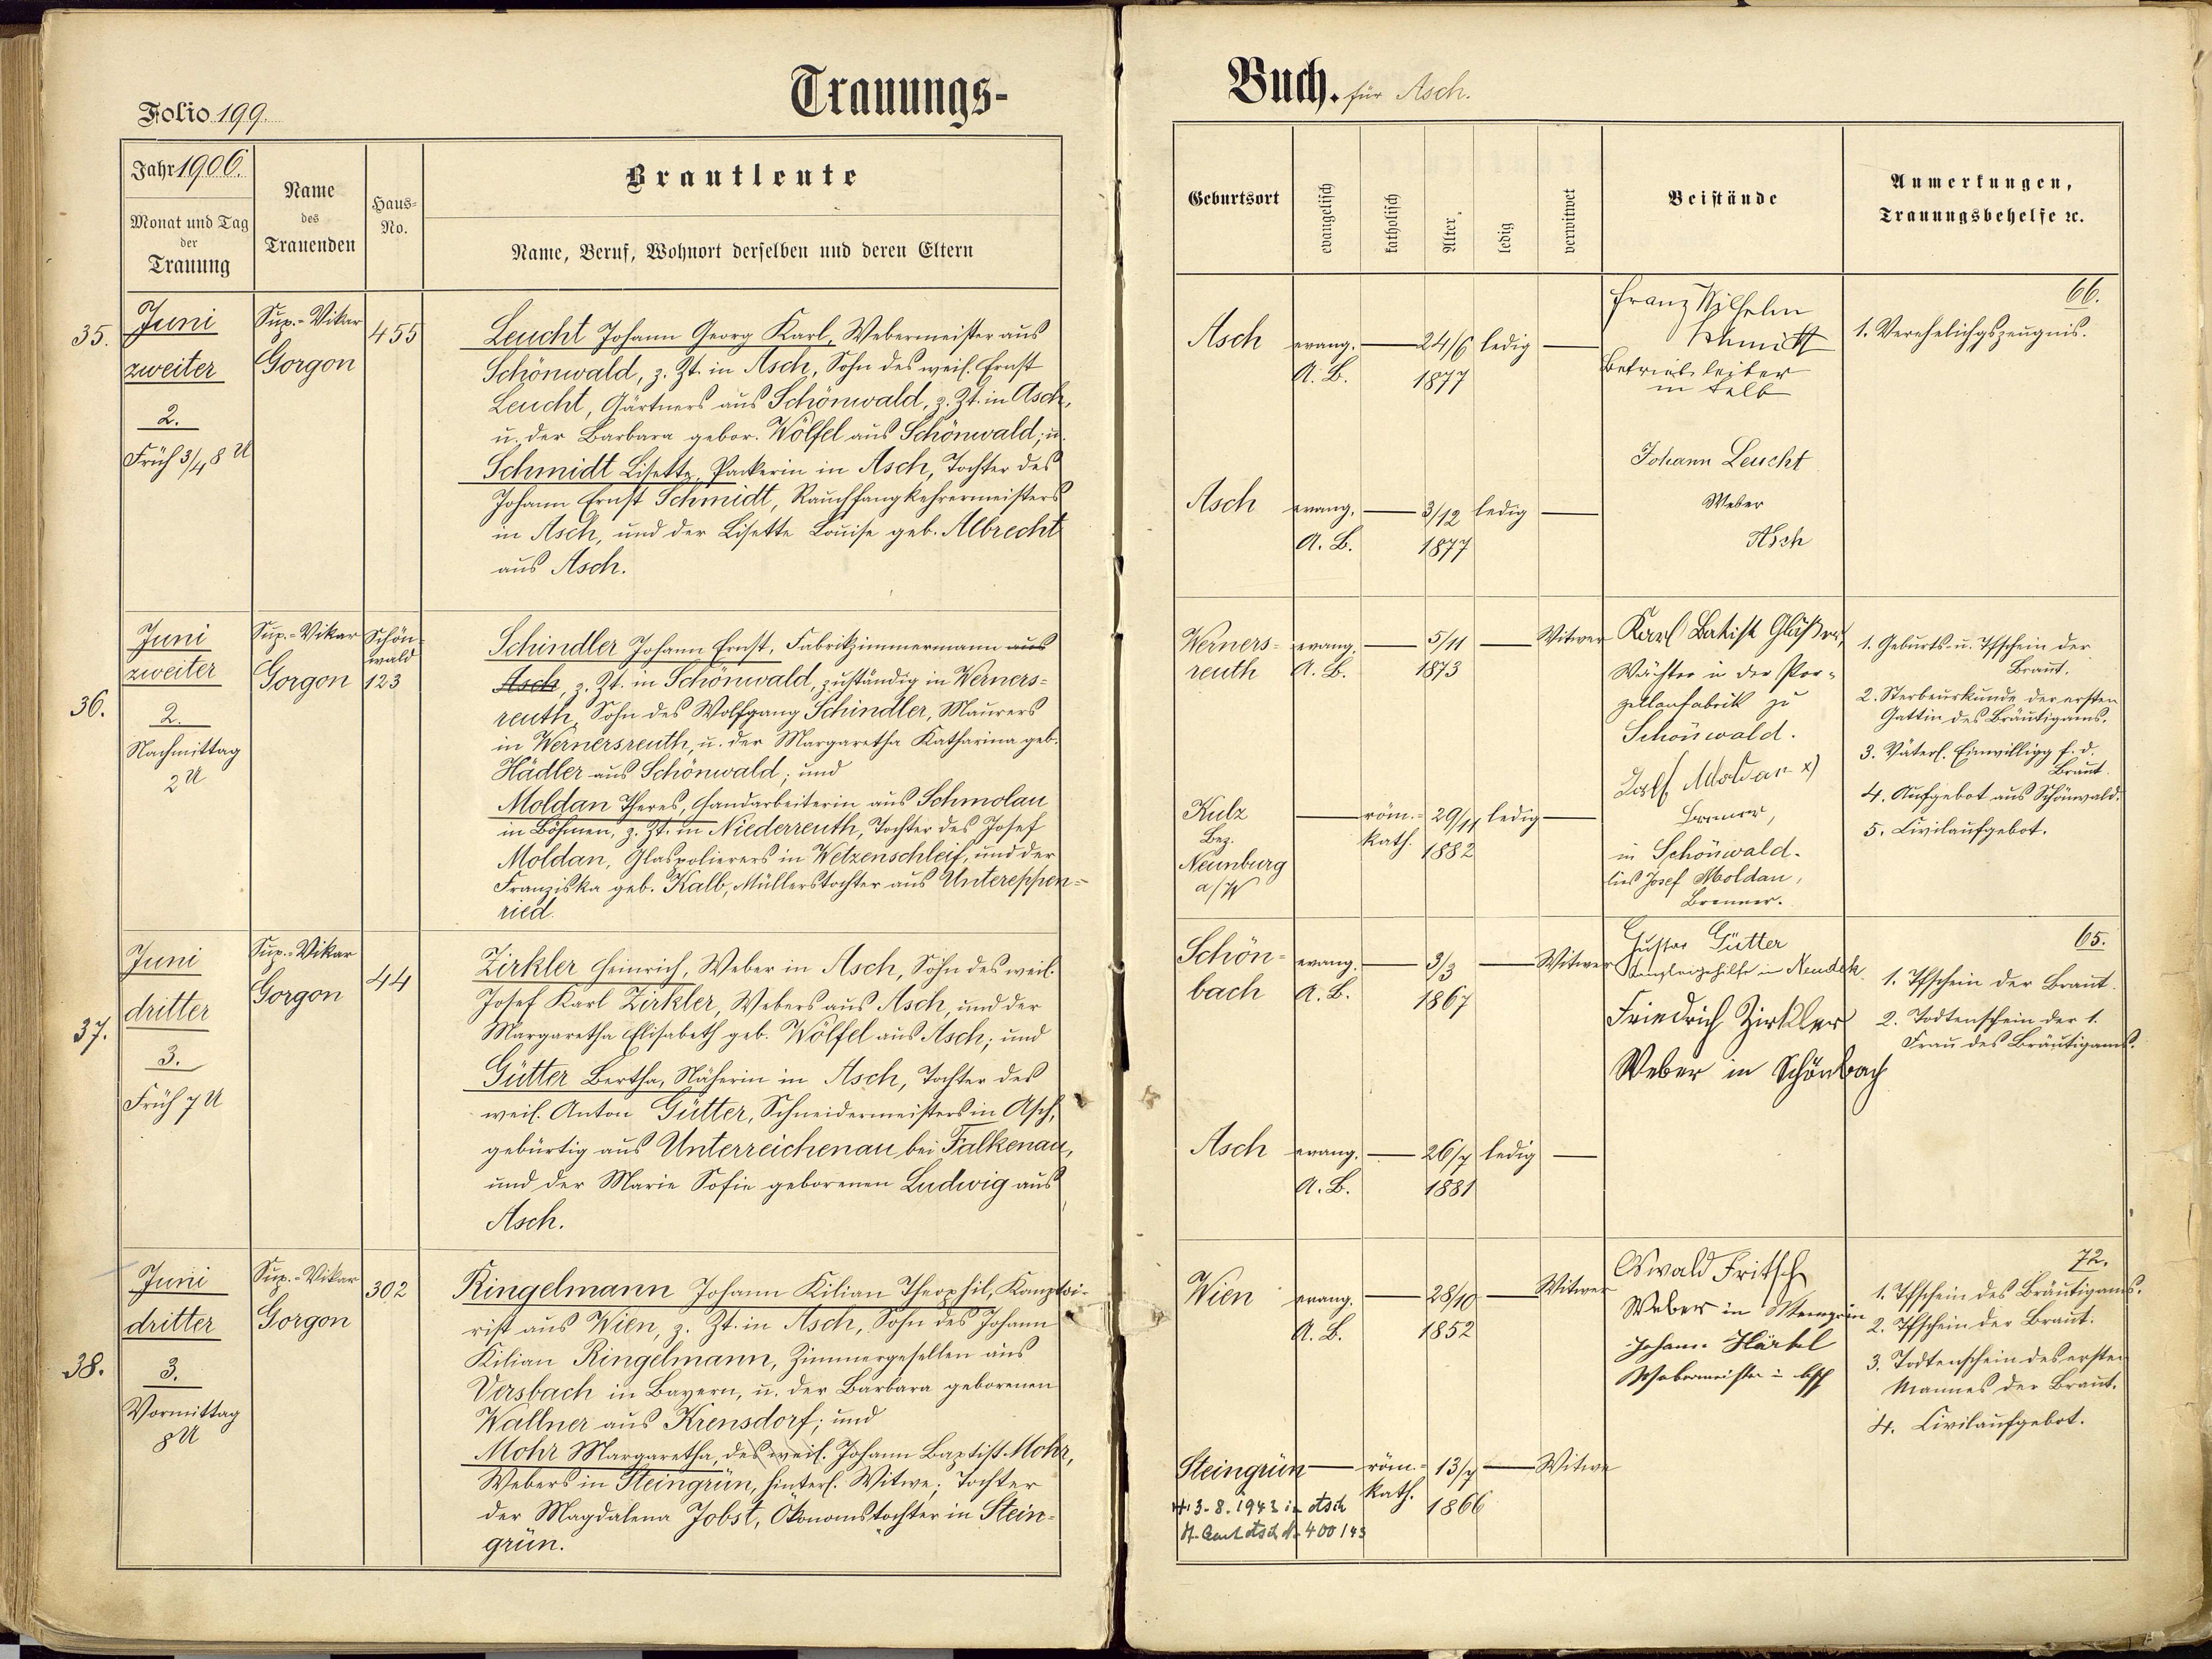 Trauungs-
Folio 199.
Jahr 1906.
Monat und Tag
der
Trauung
Name
des
Trauenden
Haus-
No.
Brautleute
Name, Beruf, Wohnort derselben und deren Eltern
35.
Juni
zweiter
2.
Früh 3/4 8 U
Sup.-Vikar
Gorgon
455
Leucht Johann Georg Karl, Webermeister aus
Schönwald, z. Zt. in Asch, Sohn des weil. Ernst
Leucht, Gärtners aus Schönwald, z. Zt. in Asch,
u. der Barbara gebor. Wölfel aus Schönwald; u.
Schmidt Lisette, Packerin in Asch, Tochter des
Johann Ernst Schmidt, Rauchfangkehrermeisters
in Asch, und der Lisette Louise geb. Albrecht
aus Asch.
36.
Juni
zweiter
2.
Nachmittag
2 U
Sup.-Vikar
Gorgon
Schön-
wald
123
Schindler Johann Ernst, Fabrikzimmermann aus
Asch, z. Zt. in Schönwald, zuständig in Werners-
reuth, Sohn des Wolfgang Schindler, Maurers
in Wernersreuth, u. der Margaretha Katharina geb.
Hädler aus Schönwald; und
Moldan Theres, Handarbeiterin aus Schmolau
in Böhmen, z. Zt. in Niederreuth, Tochter des Josef
Moldan, Glaspolierers in Wetzenschleif, und der
Franziska geb. Kalb, Müllerstochter aus Untereppen-
ried.
37.
Juni
dritter
3.
Früh 7 U
Sup.-Vikar
Gorgon
44
Zirkler Heinrich, Weber in Asch, Sohn des weil.
Josef Karl Zirkler, Webers aus Asch, und der
Margaretha Elisabeth geb. Wölfel aus Asch; und
Gütter Bertha, Näherin in Asch, Tochter des
weil. Anton Gütter, Schneidermeisters in Asch,
gebürtig aus Unterreichenau bei Falkenau,
und der Marie Sofie geborenen Ludwig aus
Asch.
38.
Juni
dritter
3.
Vormittag
8 U
Sup.-Vikar
Gorgon
302
Ringelmann Johann Kilian Theophil, Komptoi-
rist aus Wien, z. Zt. in Asch, Sohn des Johann
Kilian Ringelmann, Zimmergesellen aus
Versbach in Bayern, u. der Barbara geborenen
Wallner aus Krensdorf; und
Mohr Margaretha, des weil. Johann Baptist Mohr,
Webers in Steingrün, hinterl. Witwe; Tochter
der Magdalena Jobst, Ökonomstochter in Stein-
grün.
Buch. für Asch.
Geburtsort
evangelisch
katholisch
Alter
ledig
verwitwet
Beistände
Anmerkungen,
Trauungsbehelfe ec.
Asch evang. 24/6 ledig
A. B. 1877
Asch evang. 3/12 ledig
A. B. 1877
Franz Wilhelm
Schmidt
Betriebsleiter
in Selb
Johann Leucht
Weber
Asch
66.
1. Verehelichgszeugnis.
Werners- evang. 5/11 Witwer
reuth A. B. 1873
Kulz röm.- 29/11 ledig
Bez. kath. 1882
Neunburg
a/W
Karl Batist Gläßer,
Wächter in der Por-
zellanfabrik zu
Schönwald.
Moldan x)
Brenner,
in Schönwald.
lies Josef Moldan,
Brenner.
1. Geburts- u. Tfschein der
Braut.
2. Sterbeurkunde der ersten
Gattin des Bräutigams.
3. Väterl. Einwilligg f. d.
Braut.
4. Aufgebot aus Schönwald.
5. Civilaufgebot.
Schön- evang. 3/3 Witwer
bach A. B. 1867
Asch evang. 26/7 ledig
A. B. 1881
Gustav Gütter
Kanzleigehilfe in Neudek
Friedrich Zirkler
Weber in Schönbach
65.
1. Tfschein der Braut.
2. Todtenschein der 1.
Frau des Bräutigams.
Wien evang. 28/10 Witwer
A. B. 1852
Steingrün röm.- 13/7 Witwe
kath. 1866
+ 13.8.1943 in Asch
St. Amt Asch Nr. 400/43
Oswald Fritsch
Weber in
Johann Härtel
Webermeister in Asch
72.
1. Tfschein des Bräutigams.
2. Tfschein der Braut.
3. Todtenschein des ersten
Mannes der Braut.
4. Civilaufgebot.